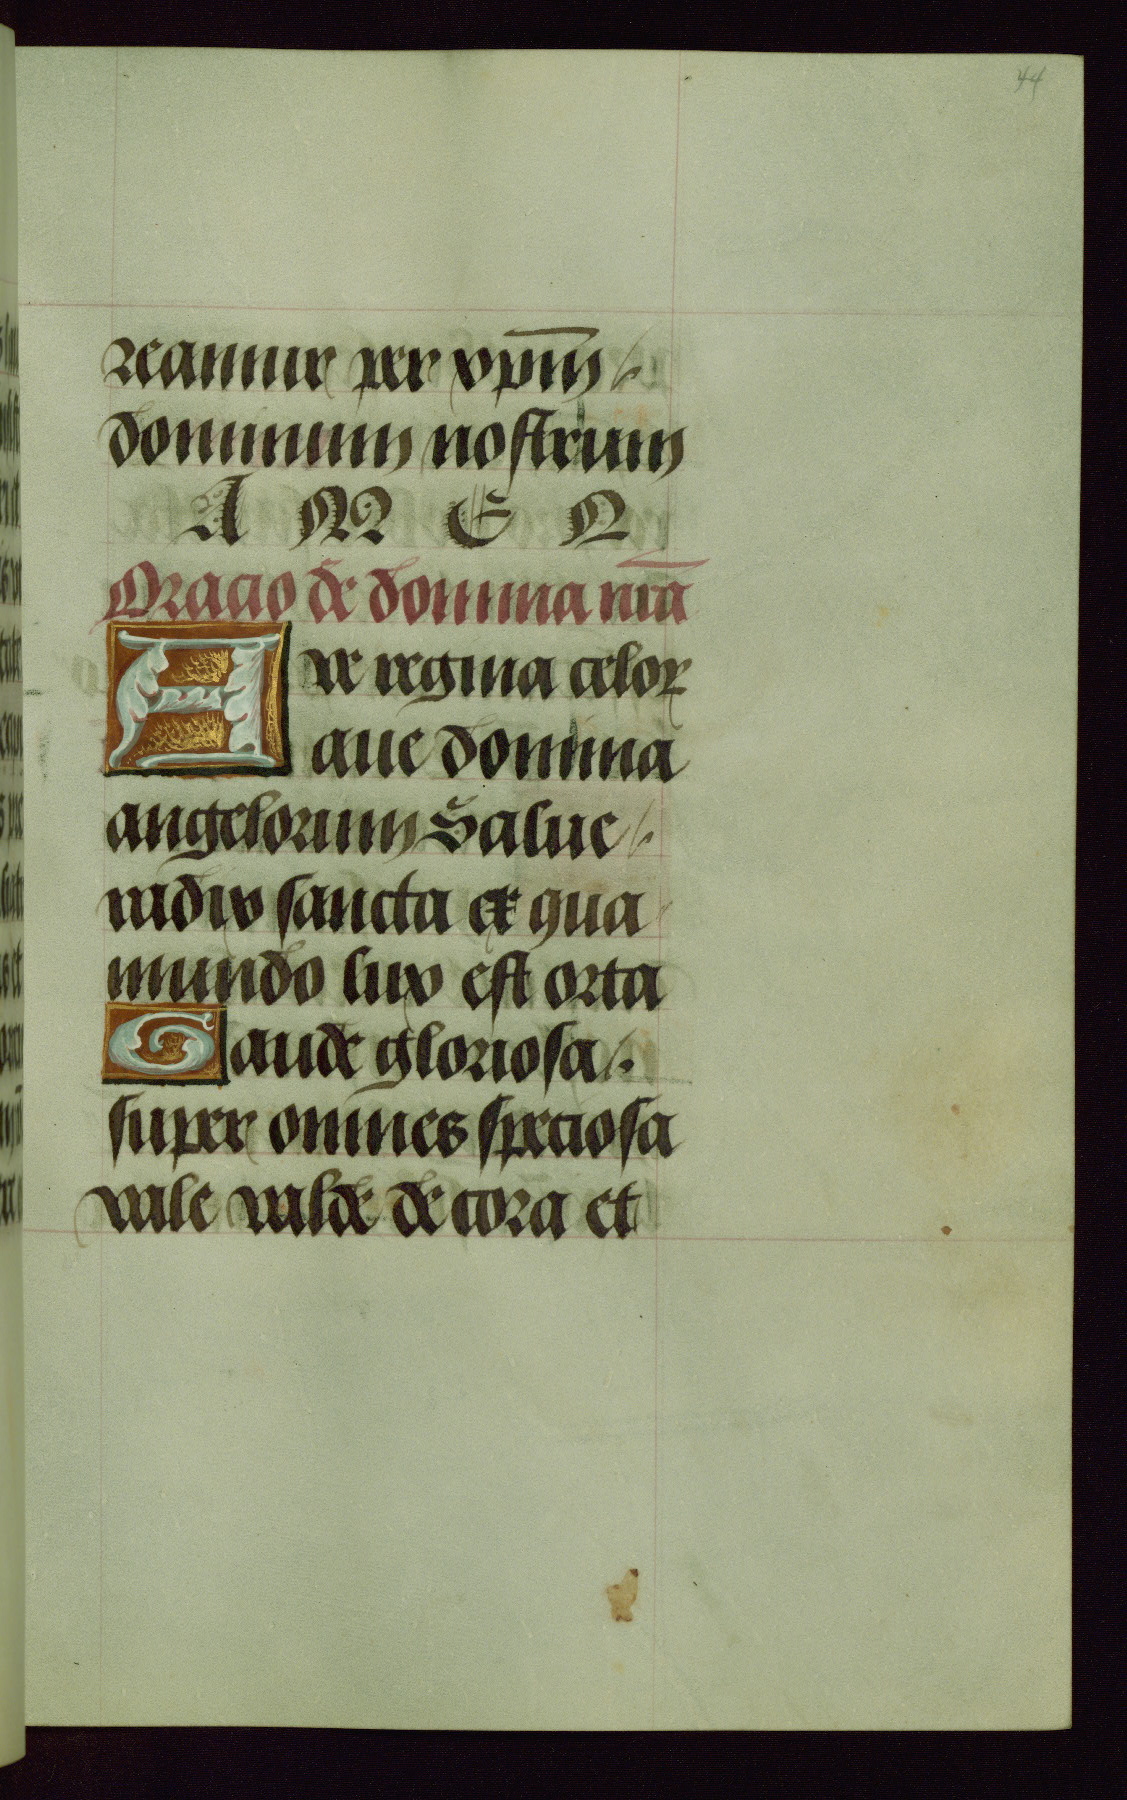 44
reamur per xp̄m /
dominum nostrum
A M E N
Oracio de domina nr̄a
Aue regina celoꝝ
aue domina
angelorum Salue /
radix sancta ex qua
mundo lux est orta
Gaude gloriosa /.
super omnes speciosa
vale valde decora et